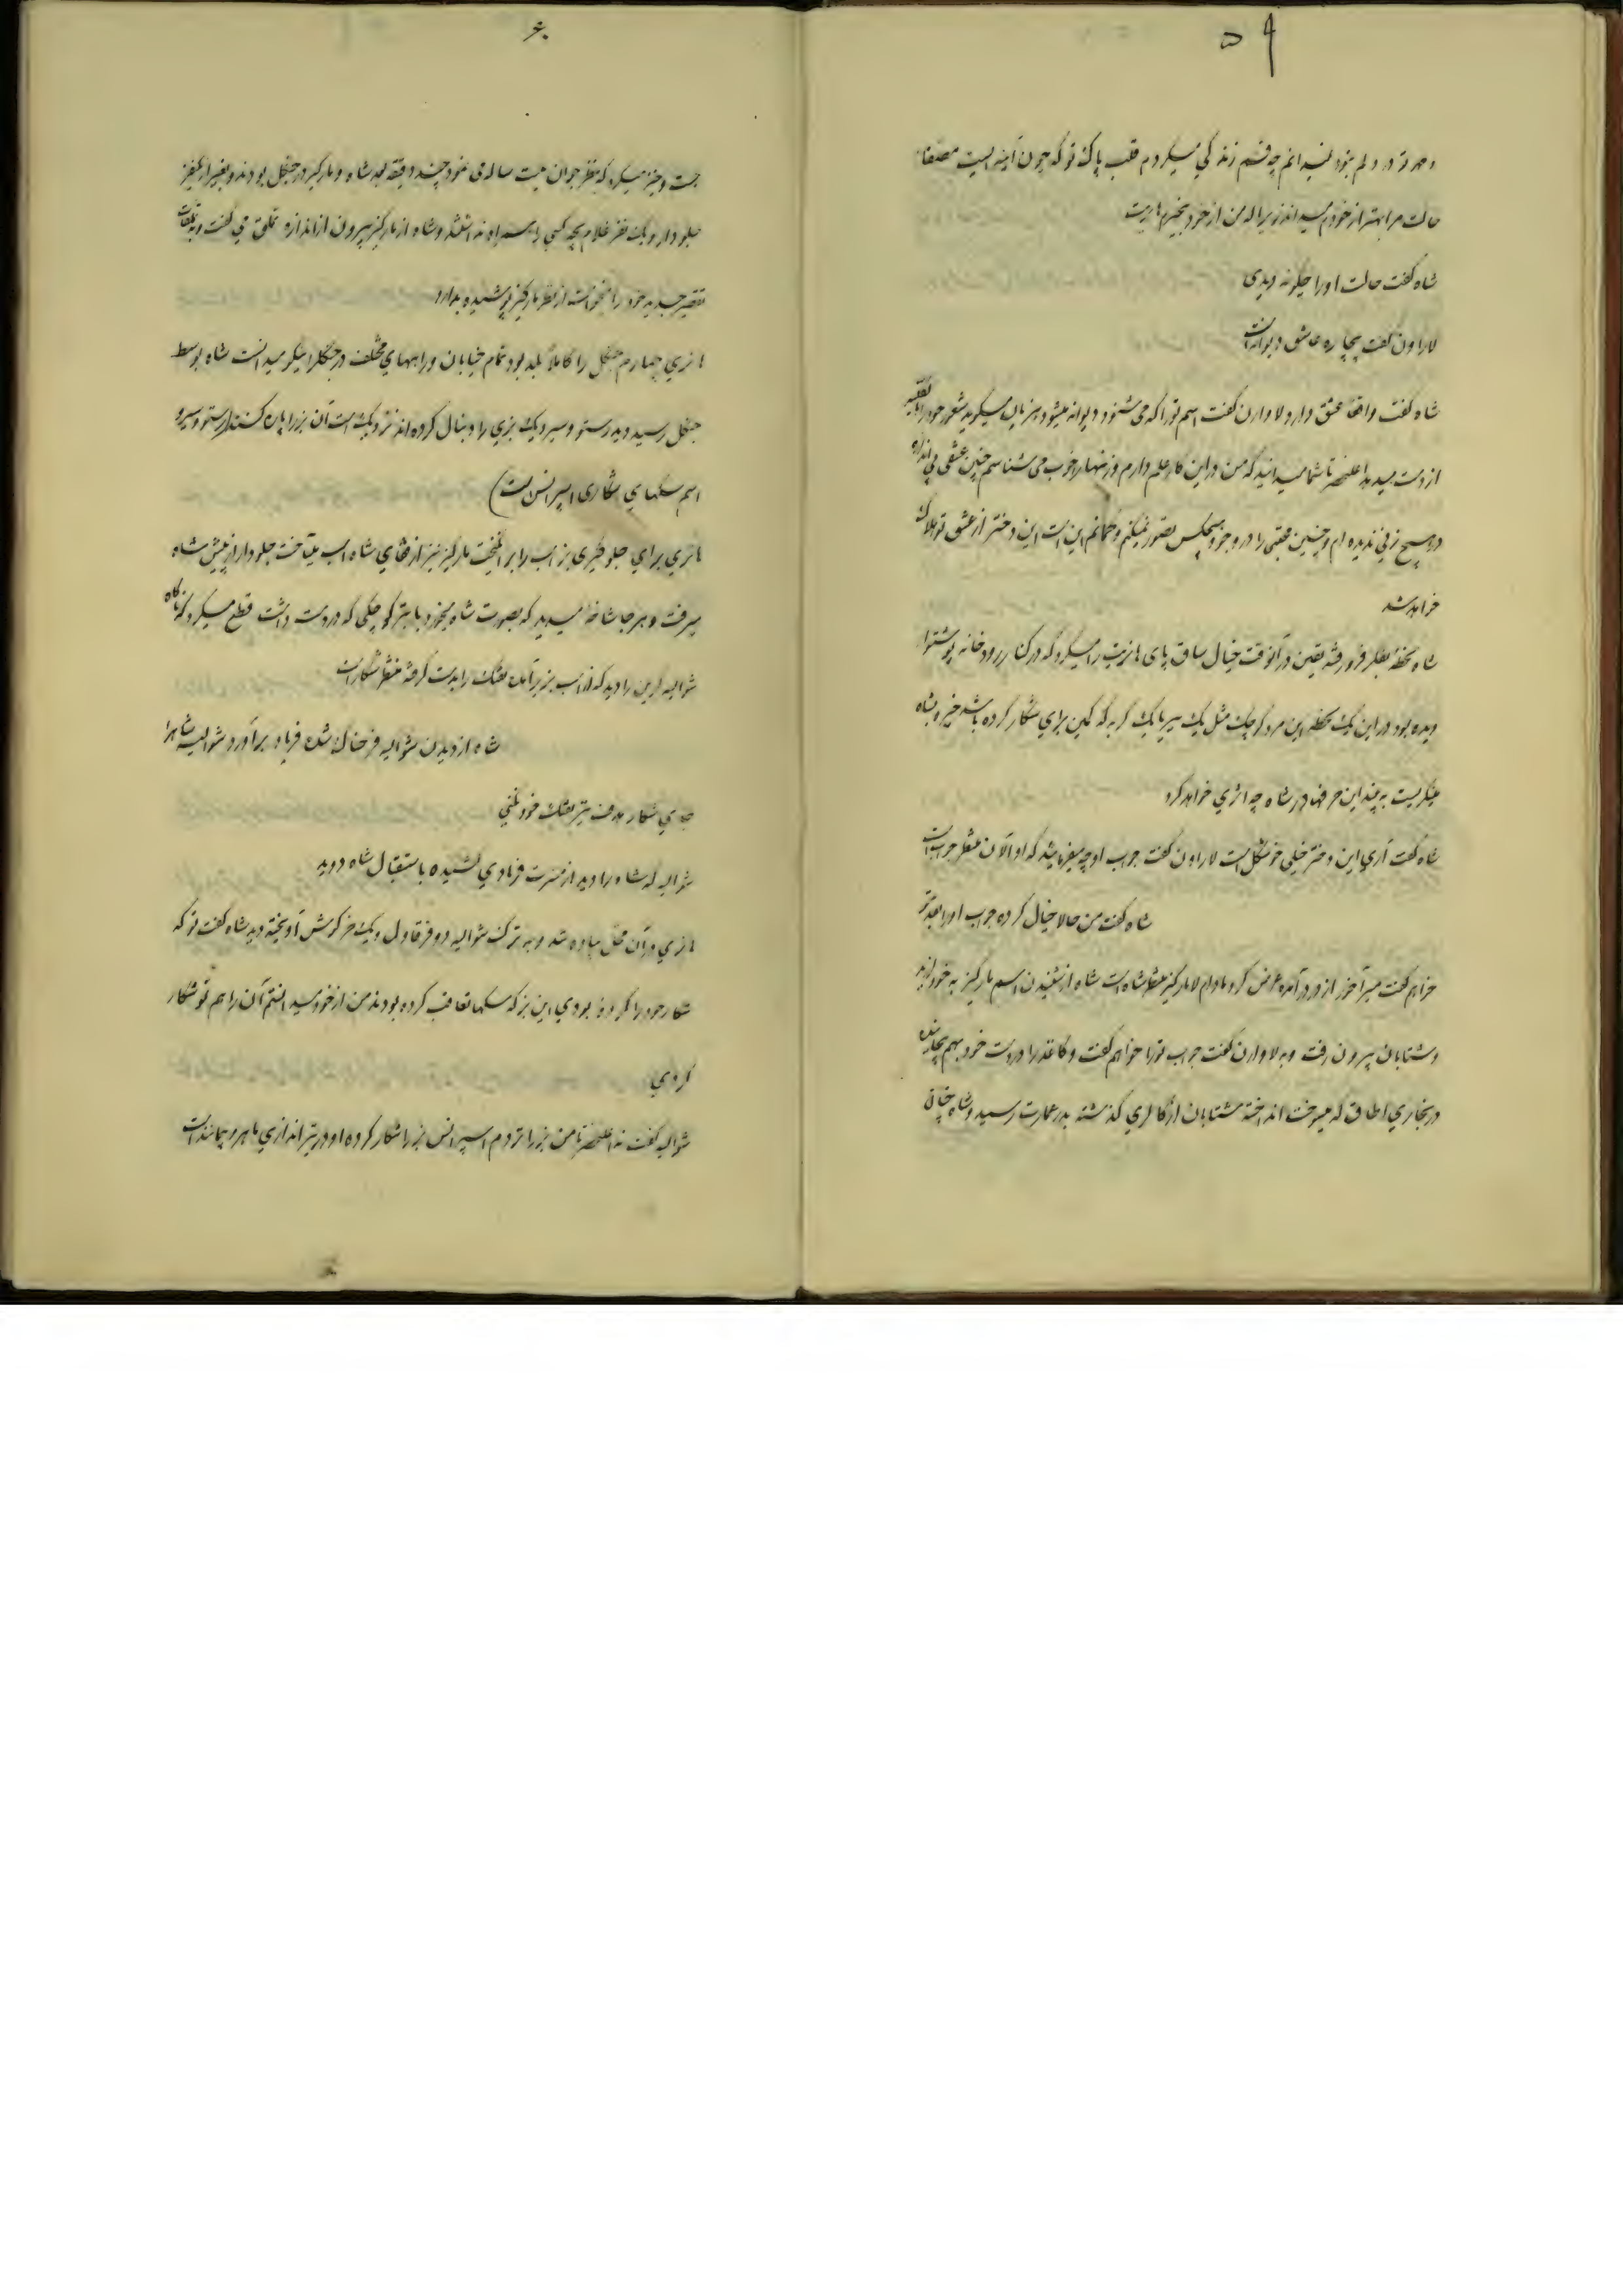 ۵۹
و مهر تو در دلم نبود نمیدانم چه قسم زندگی میکردم قلب پاک تو که چون آینه ایست مصفا
حالت مرا بهتر از خودم میداند زیرا که من از خود بیخبرها ریت
شاه گفت حالت او را چگونه دیدی
لاراون گفت بیچاره عاشق دیوانه است
شاه گفت واقعا عشق دارد لاوارن گفت اسم تو را که می شنود دیوانه میشود هزیان میگوید شعور خود را بالبقیه
از دست میدهد اعلیحضرتا شما میدانید که من در این کار علم دارم و زنها را خوب می شناسم چنین عشقی بی اندازه
در هیچ زنی ندیده ام و چنین محبتی را در وجود هیچکس تصور نمیکنم و گمانم این است این دختر از عشق تو هلاک
خواهد شد
شاه لحظه بفکر فرو رفته یقین در آنوقت خیال ساق پای هانریت را میکرد که در کنار رودخانه پوشتوا
دیده بود در این یک لحظه این مرد کوچک مثل یک ببر یا یک گربه که کمین برای شکار کرده باشد خیره بشاه
مینگریست به بیند این حرفها در شاه چه اثری خواهد کرد
شاه گفت آری این دختر خیلی خوشگل است لاراون گفت جواب او چه میفرمائید که او الآن منتظر جواب است
شاه گفت من حالا خیال کرده جواب او را بعد بتو
خواهم گفت میرآخور از در در آمده عرض کرد مادام لامارکیز منتظر شاه است شاه از شنیدن اسم مارکیز به خود لرزید
و شتابان بیرون رفت و به لاوارن گفت جواب تو را خواهم گفت و کاغذ را در دست خود بهم پیچانده
در بخاری اطاق که میسوخت انداخته شتابان از گالری گذشته بدر عمارت رسید و شاه چنان
۶۰
جست و خیز میکرد که بنظر جوان بیست ساله می نمود چند دقیقه بعد شاه و مارکیز در جنگل بودند و بغیر از یکنفر
جلودار و یک نفر غلام بچه کسی را همراه نداشتند و شاه از مارکیز بیرون از اندازه تملق می گفت و به تملقات
تقصیر جدید خود را میخواست از نظر مارکیز پوشیده بدارد
هانری چهارم جنگل را کاملا بلد بود تمام خیابان و راههای مختلف در جنگل را نیکو میدانست شاه بوسط
جنگل رسید دید رستو و سیرو یک بزی را دنبال کرده اند نزدیک است آن بز را پاره کنند (رستو و سیرو
اسم سگهای شکاری اسپرانس است)
هانری برای جلوگیری بز اسب را برانگیخت مارکیز نیز از قفای شاه اسب میتاخت جلودار از پیش شاه
میرفت و هر جا شاخه میدید که بصورت شاه میخورد با تبر کوچکی که در دست داشت قطع میکرد که ناگاه
شوالیه کرین را دید که از اسب بزیر آمده تفنگ را بدست گرفته منتظر شکار است
شاه از دیدن شوالیه فرحناک شده فریاد برآورد شوالیه شاه را
بجای شکار هدف تیر تفنگ خود نکنی
شوالیه که شاه را دید از مسرت فریادی کشیده باستقبال شاه دوید
هانری در آن محل پیاده شد و به ترک شوالیه دو قرقاول و یک خرگوش آویخته دید شاه گفت تو که
شکار خود را کرده بودی این بز که سگها تعاقب کرده بودند من از خود میدانستم آن را هم تو شکار
کردی
شوالیه گفت نه اعلیحضرتا من بز را نزدم اسپرانس بز را شکار کرده او در تیراندازی ماهر و بیمانند است